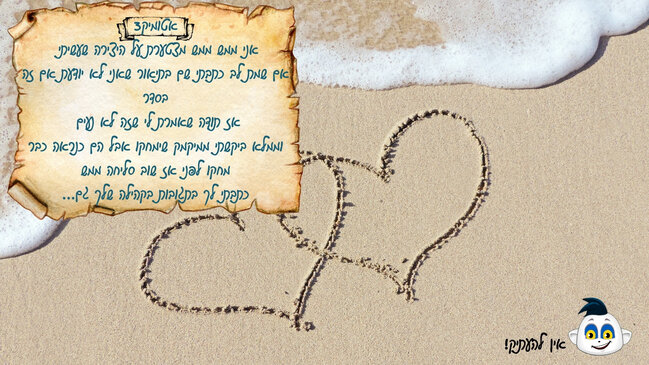 אטומיק3
אני ממש ממש מצטערת על היצירה שעשיתי
אם שמת לב כתבתי שם בתיאור שאני לא יודעת אם זה
בסדר
אז תודה שאמרת לי שזה לא נעים
וממלא ביקשתי ממיקמק שימחקו אבל הם כנראה כבר
מחקו לפני אז שוב סליחה ממש
כתבתי לך בתגובות בקהילה שלך גם...
אין להעתיק!